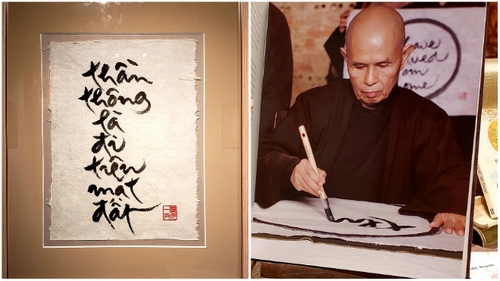 thần
thông
là
đi
trên
mặt
đất
have
home